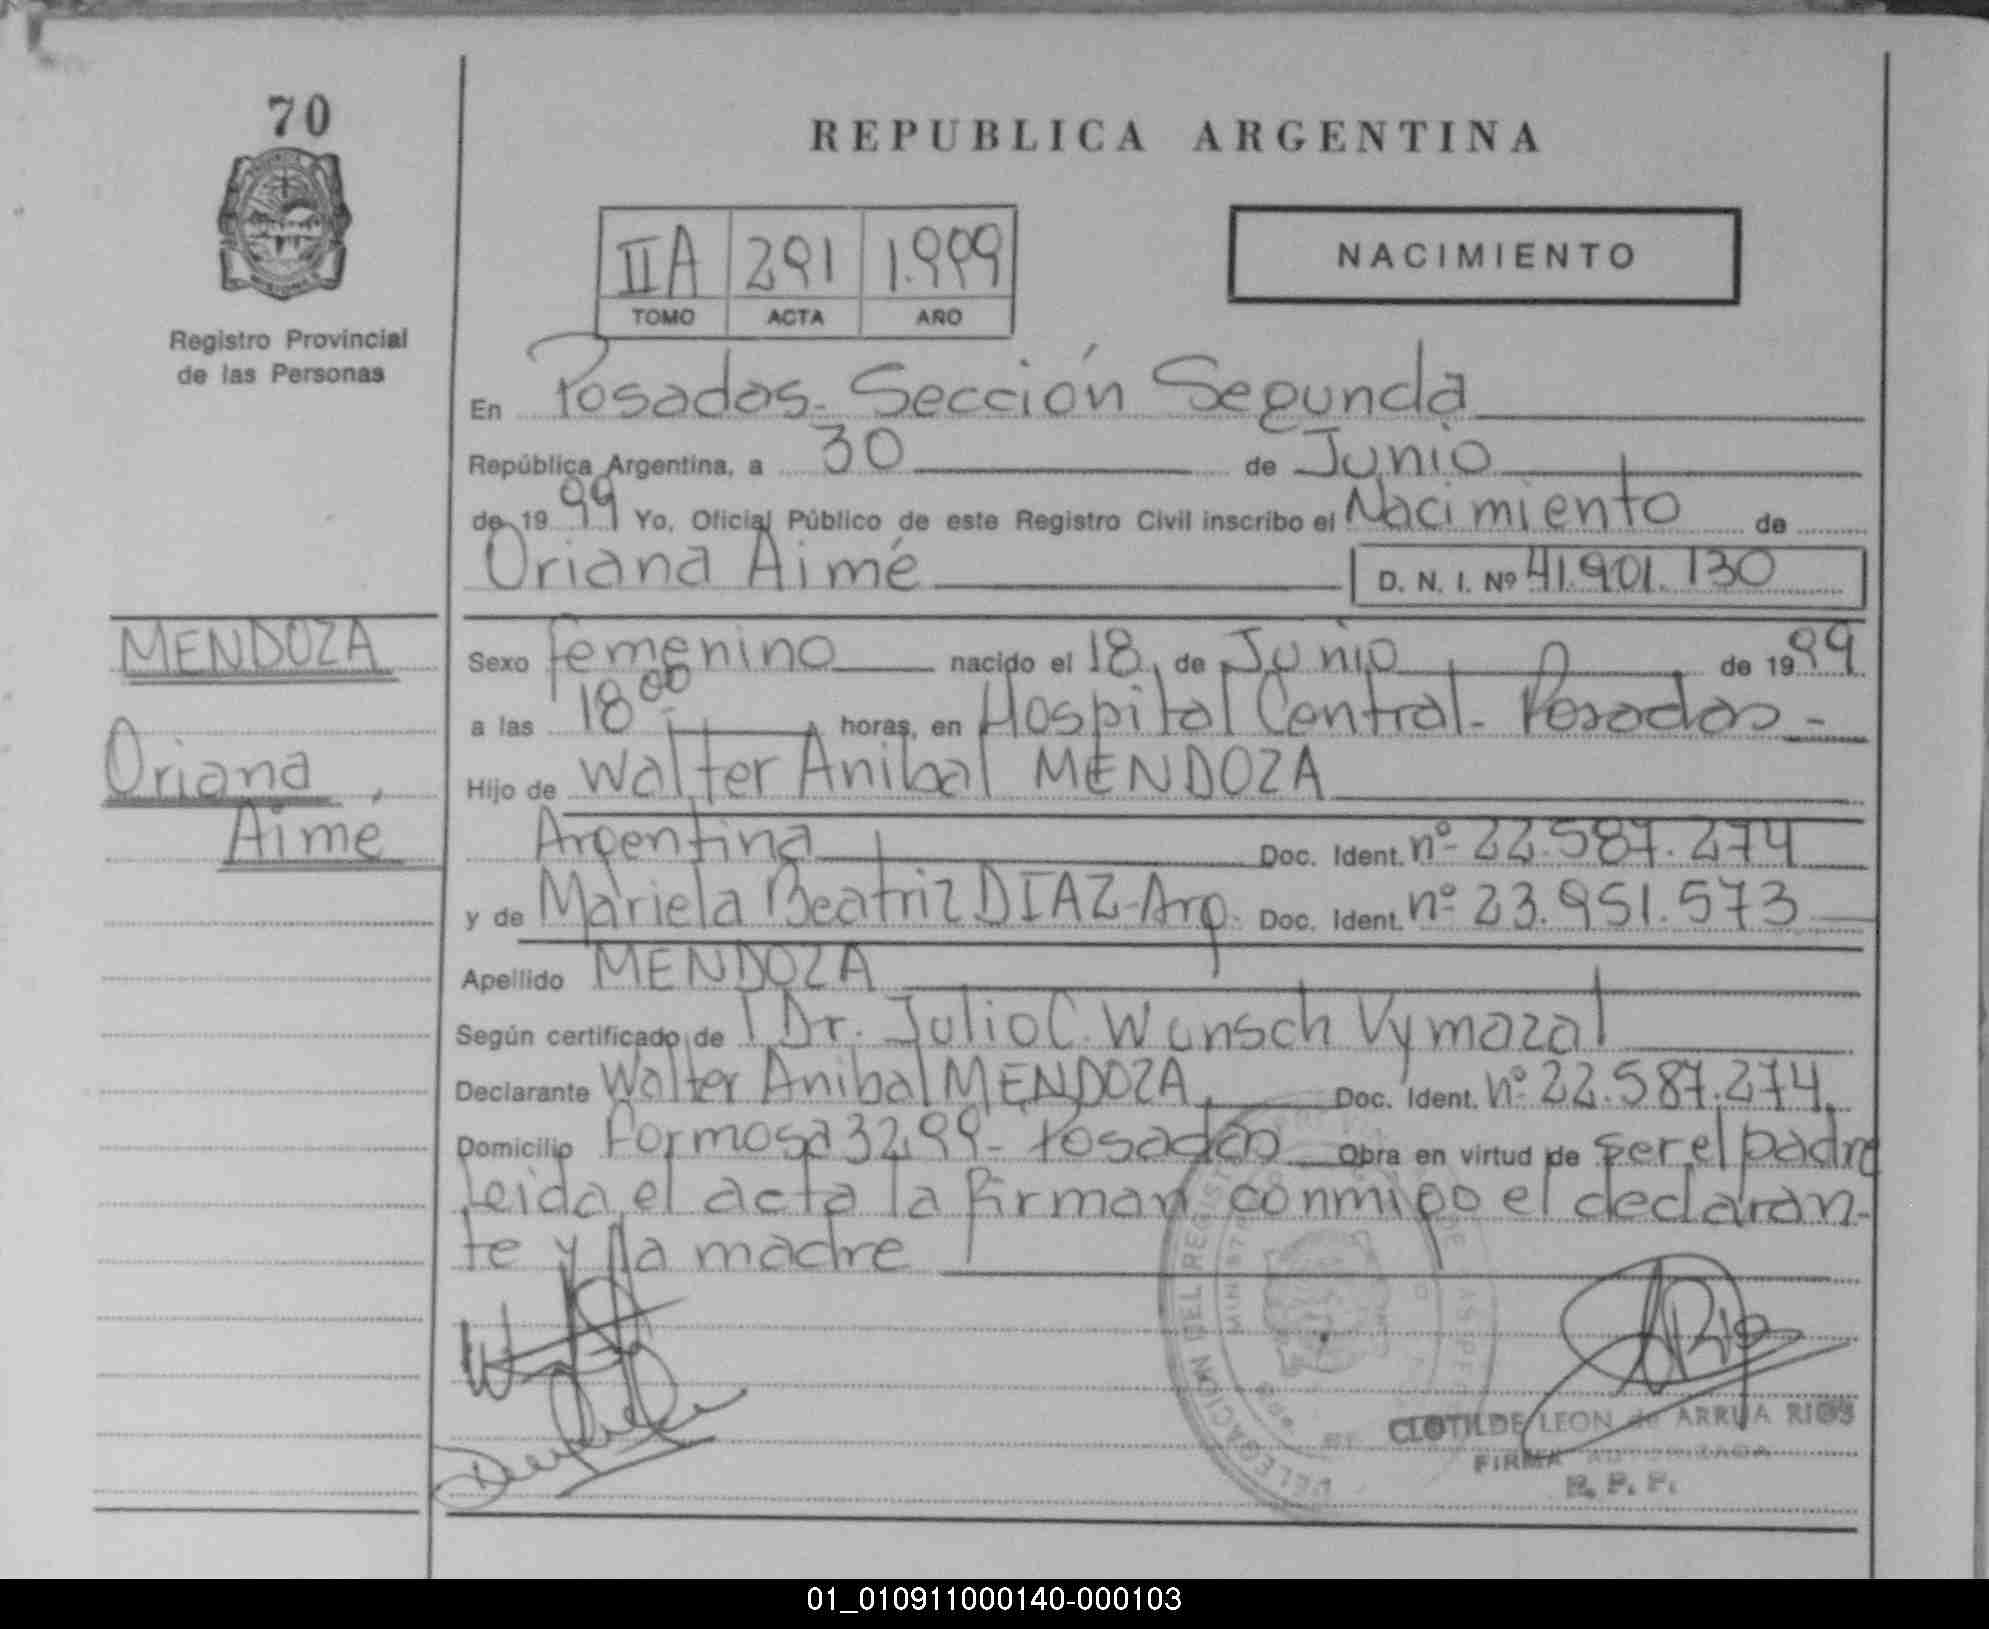 70
REPUBLICA ARGENTINA
IIA 291 1.999
TOMO ACTA AÑO
NACIMIENTO
Registro Provincial
de las Personas
En Posadas. Sección Segunda
República Argentina, a 30 de Junio
de 19 99 Yo, Oficial Público de este Registro Civil inscribo el Nacimiento de
Oriana Aimé D. N. I. Nº 41.901.130
MENDOZA
Oriana
Aimé
Sexo femenino nacido el 18 de Junio de 19 99
a las 18 00 horas, en Hospital Central - Posadas -
Hijo de Walter Anibal MENDOZA
Argentina Doc. Ident. nº 22.587.274
y de Mariela Beatriz DIAZ-Arg. Doc. Ident. nº 23.951.573
Apellido MENDOZA
Según certificado de l Dr. Julio C. Wunsch Vymazal
Declarante Walter Anibal MENDOZA Doc. Ident. nº 22.587.274
Domicilio Formosa 3299 - Posadas Obra en virtud de ser el padre
leida el acta la firman conmigo el declaran-
te y la madre
DELEGACIÓN DEL REGISTRO
CLOTILDE LEON de ARRUA RIOS
FIRMA AUTORIZADA
R. P. P.
01_010911000140-000103